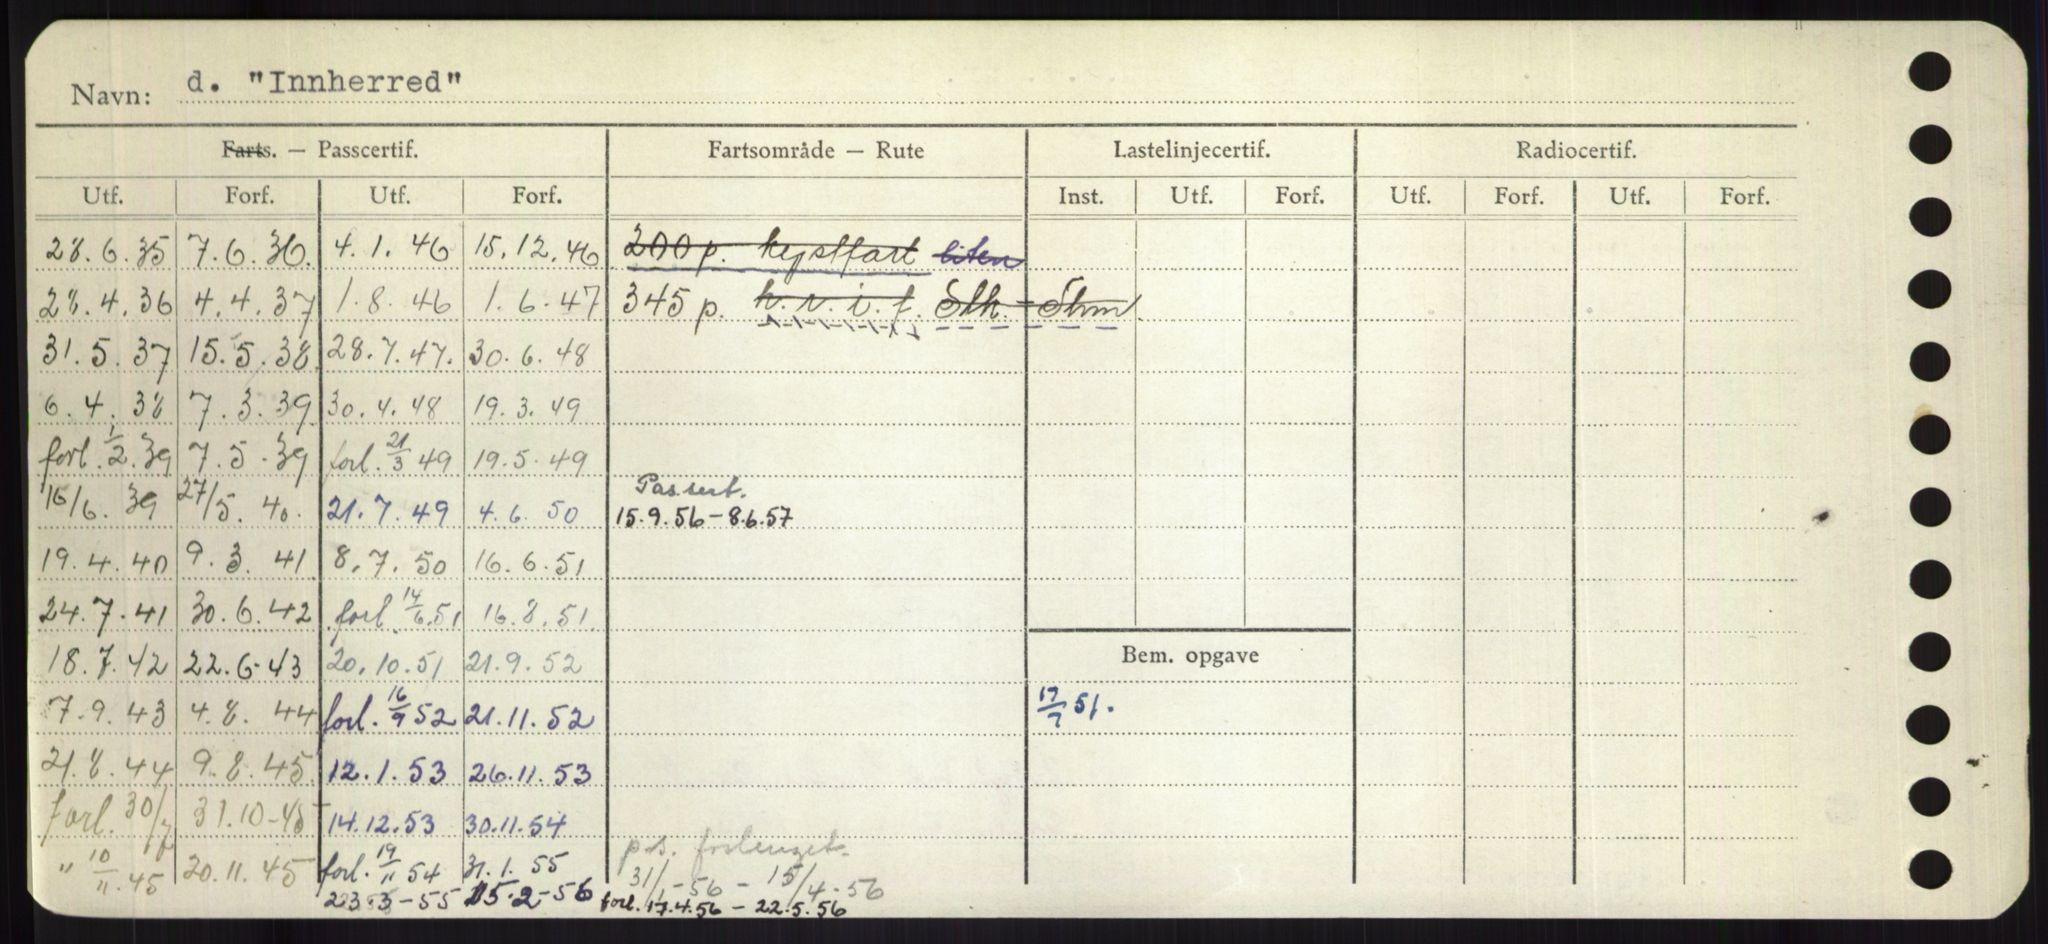 Navn: d. "Innherred"
Farts. — Passcertif. Fartsområde — Rute Lastelinjecertif. Radiocertif.
Utf. Forf. Utf. Forf. Inst. Utf. Forf. Utf. Forf. Utf. Forf.
28.6.35 7.6.36. 4.1.46 15.12.46 200 p. kystfart liten
28.4.36 4.4.37 1.8.46 1.6.47 345 p. k.v.i.f. Slk - Shm
31.5.37 15.5.38 28.7.47. 30.6.48
6.4.38 7.3.39 30.4.48 19.3.49
forl. 1/2.39 7.5.39 forl. 21/3 49 19.5.49
16/6.39 27/5.40. 21.7.49 4.6.50 Passert. 15.9.56 - 8.6.57
19.4.40 9.3.41 8.7.50 16.6.51
24.7.41 30.6.42 forl. 14/6.51 16.8.51.
18.7.42 22.6.43 20.10.51 21.9.52 Bem. opgave
7.9.43 4.8.44 forl. 16/9 52 21.11.52 17/7 51.
21.8.44 9.8.45 12.1.53 26.11.53
forl. 30/7 31.10-45 14.12.53 30.11.54
" 10/11.45 20.11.45 forl. 19/11 54 31.1.55 p.s. forlenget.
31/1-56 - 15/4-56
23 3-55 15.2-56 forl. 17.4.56 - 22.5.56